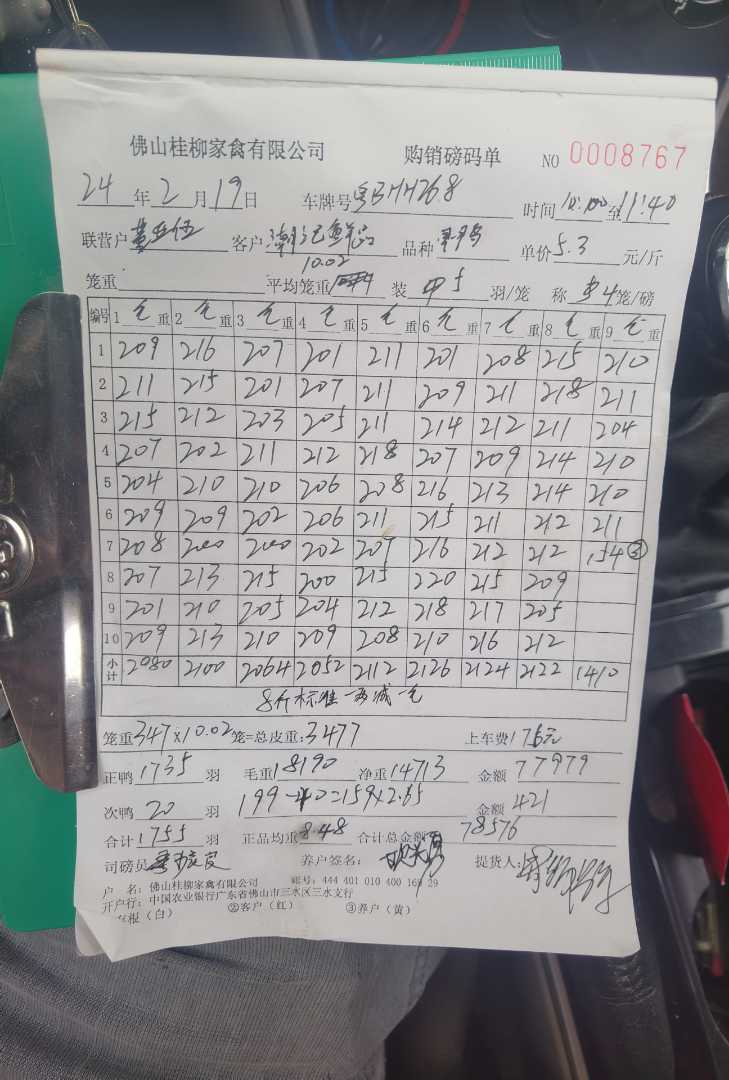 佛山桂柳家禽有限公司 购销磅码单 NO 0008767
24 年 2 月 19 日 车牌号 粤BHH268 时间 10:00 至 11:40
联营户 客户 潮记鲜品 品种 单价 5.3 元/斤
10.02
笼重 平均笼重 装 中5 羽/笼 称 4 笼/磅
编号 1 毛重 2 毛重 3 毛重 4 毛重 5 毛重 6 毛重 7 毛重 8 毛重 9 毛重
1 209 216 207 201 211 201 208 215 210
2 211 215 201 207 211 209 211 218 211
3 215 212 203 205 211 214 212 211 204
4 207 202 211 212 218 207 209 214 210
5 204 210 210 206 208 216 213 214 210
6 209 209 202 206 211 215 211 212 211
7 208 200 200 202 207 216 212 212 154 ③
8 207 213 215 200 215 220 215 209
9 201 210 205 204 212 218 217 205
10 209 213 210 209 208 210 216 212
小计 2080 2100 2064 2052 2112 2126 2124 2122 1410
8斤标准一两减一毛
笼重 347×10.02 笼=总皮重: 3477 上车费 176元
正鸭 1735 羽 毛重 18190 净重 14713 金额 77979
次鸭 20 羽 199-40=159×2.65 金额 421
合计 1755 羽 正品均重 8.48 合计总金额 78576
司磅员 养户签名: 提货人:
户 名: 佛山桂柳家禽有限公司 账号: 444 401 010 400 169 29
开户行: 中国农业银行广东省佛山市三水区三水支行
(白) ②客户(红) ③养户(黄)